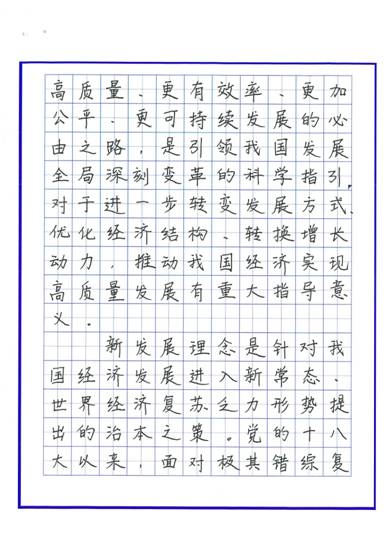 高质量、更有效率、更加
公平、更可持续发展的必
由之路，是引领我国发展
全局深刻变革的科学指引，
对于进一步转变发展方式、
优化经济结构、转换增长
动力，推动我国经济实现
高质量发展有重大指导意
义。
新发展理念是针对我
国经济发展进入新常态、
世界经济复苏乏力形势提
出的治本之策。党的十八
大以来，面对极其错综复